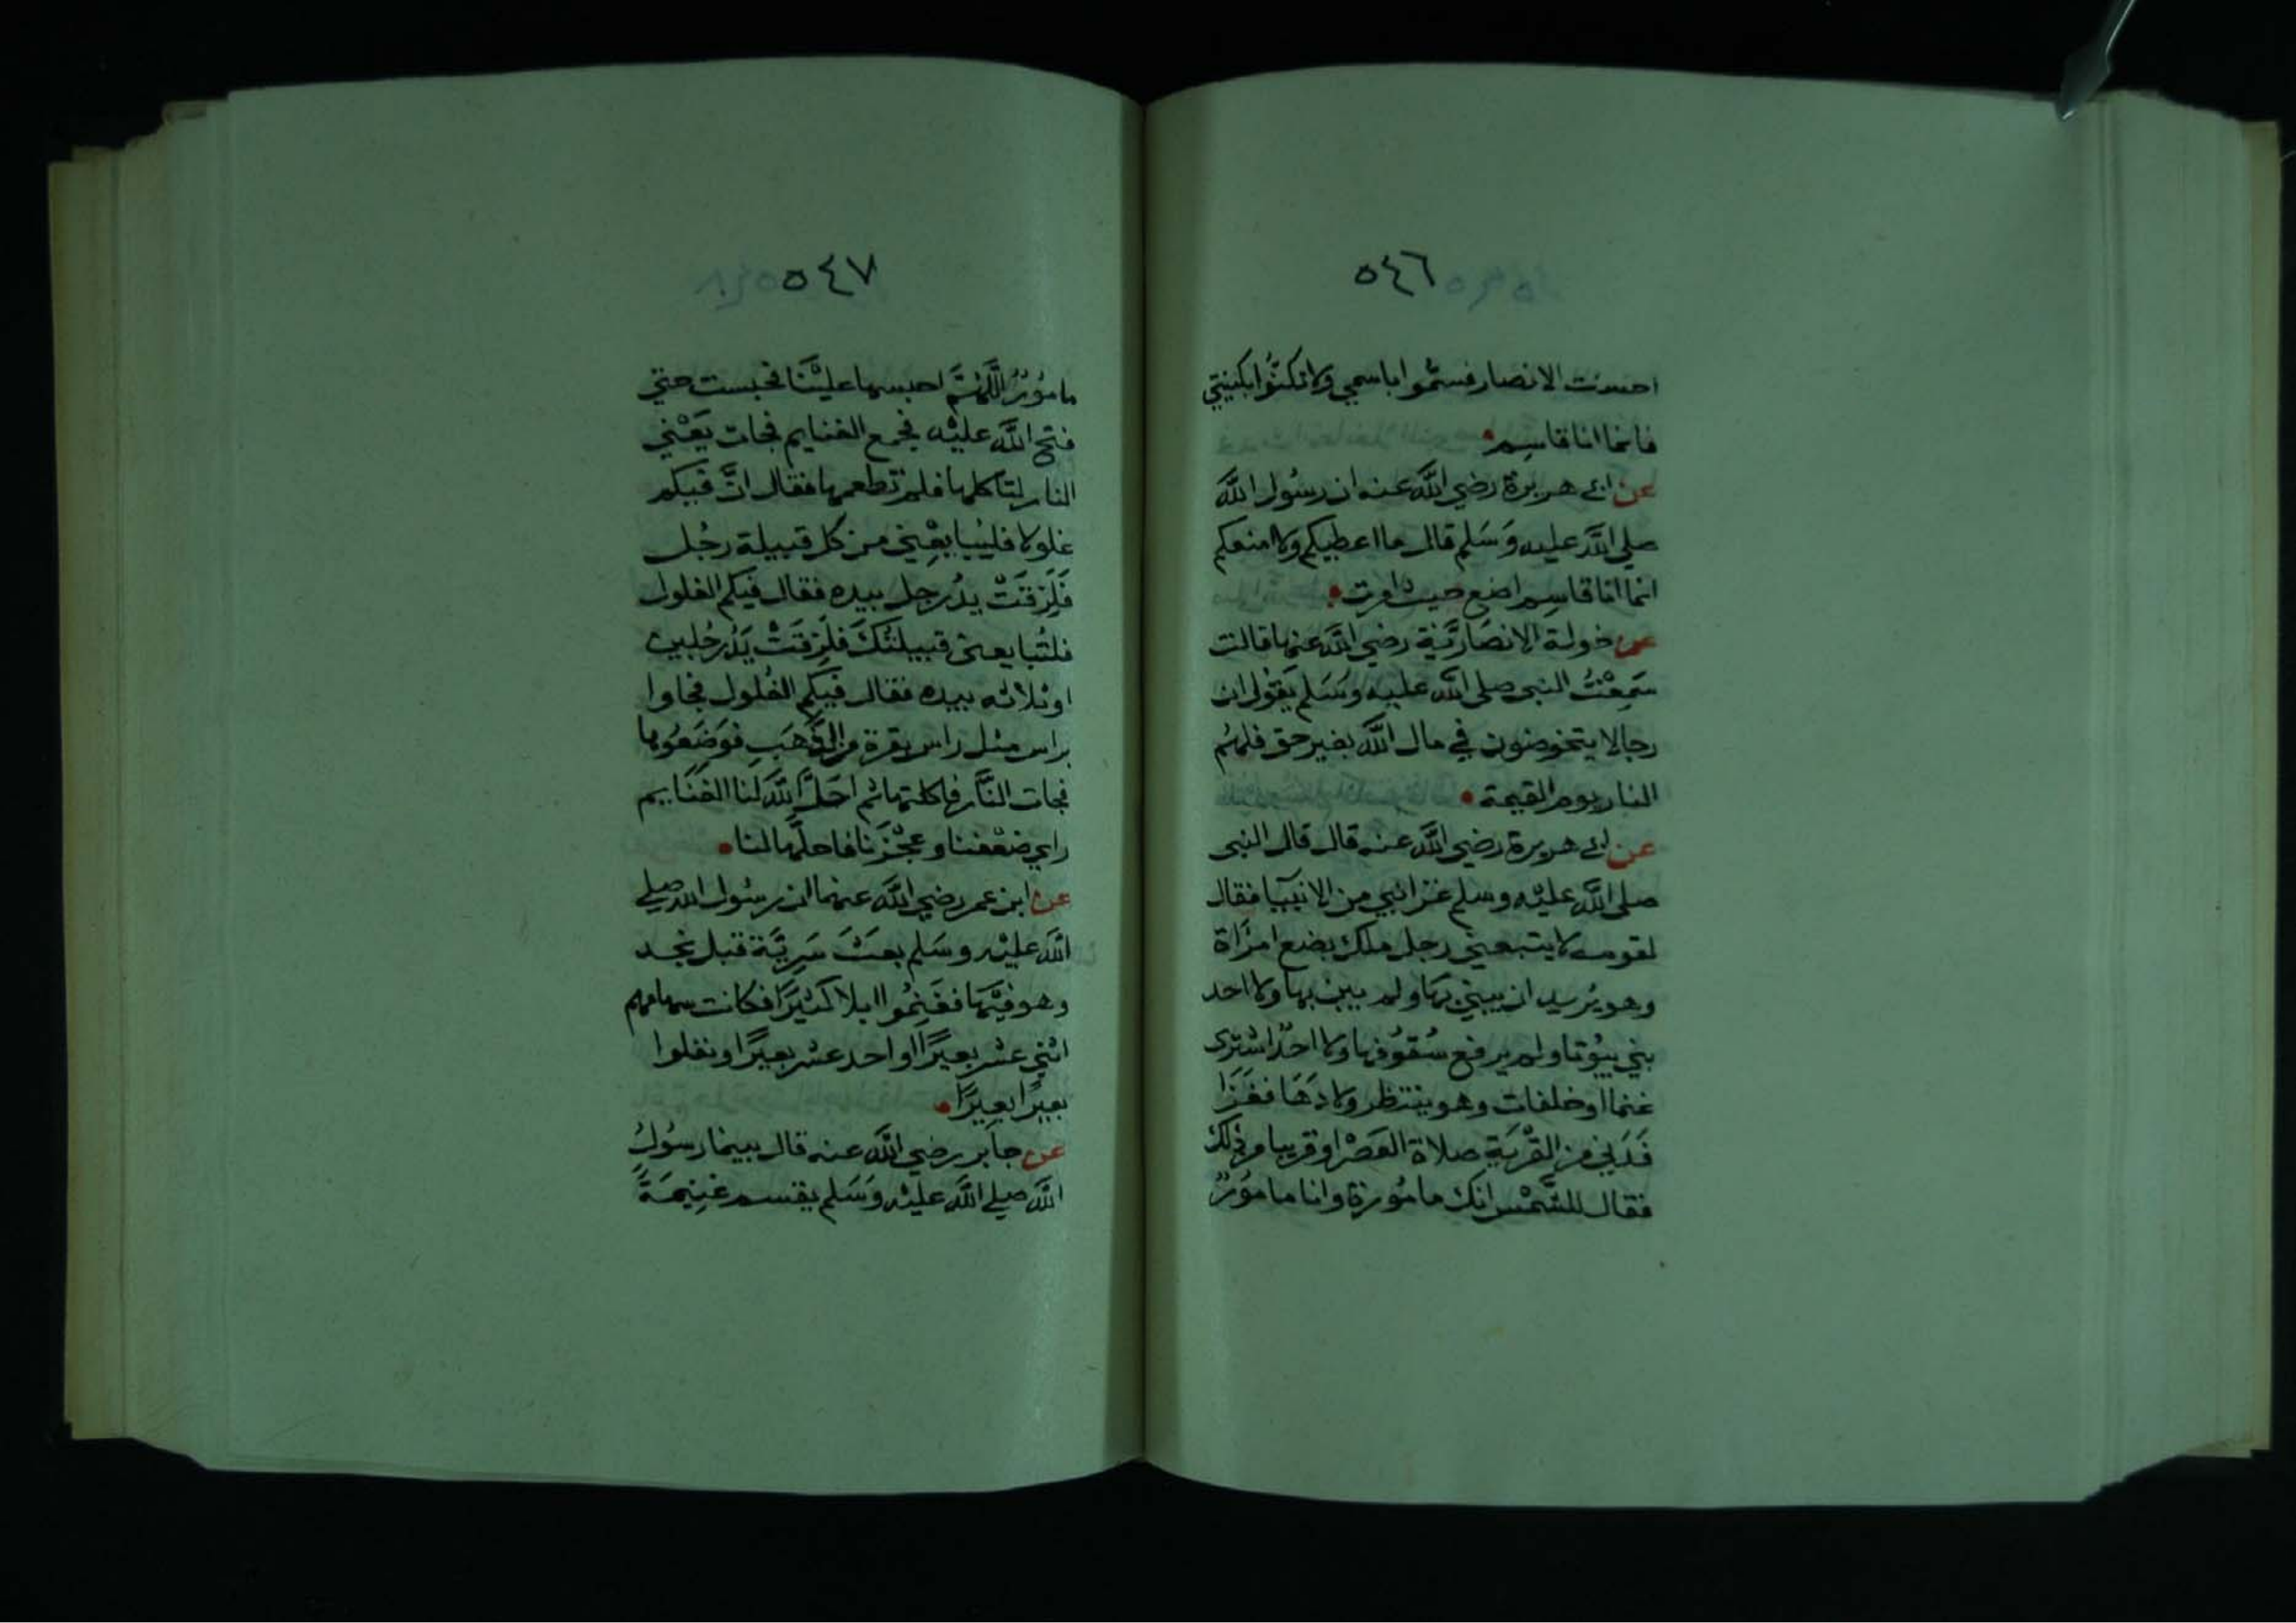 ٥٤٦
احسنت الانصار فسمُّوا باسمي ولا تكنُّوا بكنيتي
فانما انا قاسِم
عن ابي هريرة رضي اللَّه عنه ان رسُول اللَّه
صلي اللَّه عليه وَسَلم قال ما اعطيكم ولا امنعكم
انما انا قاسِم اضع حيث امرت
عن خولة الانصَاريَّة رضي اللَّه عنها قالت
سَمِعْتُ النبي صلي اللَّه عليه وسَلم يَقول ان
رجالا يتخوضون في مال اللَّه بغير حق فلهُم
النار يوم القيمة
عن ابي هريرة رضي اللَّه عنه قال قال النبي
صلي اللَّه عليْه وسلم غزا نبي من الانبيآ فقال
لقومه لا يتبعني رجل ملك بضع امرَاة
وهو يُريد ان يبني بهَا ولم يبن بها ولا احد
بني بيُوتا ولم يرفع سُقوُفها ولا احدٌ اشترى
غنما او خلفات وهو ينتظر ولادهَا فغَزَا
فَدَني من القَرْيَةِ صلاة العَصْر او قريبا من ذلك
فقال للشَّمْس انك مامُورة وانا مامُورٌ
٥٤٧
مامُورٌ اللَّهُمَّ احبسها عليْنَا فحبست حتي
فتح اللَّه عليْه فجمع الغنايم فجات يَعْني
النار لتاكلها فلم تطعمها فقال انَّ فيكم
غلولا فليُبايعْني من كل قبيلة رجُل
فَلَزِقَتْ يدُ رجل بيده فقال فيكم الغلول
فلتُبايعني قبيلتُكَ فلَزِقَتْ يَدُ رجُلين
او ثلاثه بيده فقال فيكم الغُلول فجاوا
براس مثل راس بقرة من الذَّهَبِ فوَضَعُوها
فجات النَّار فاكلتها ثم احَلَّ اللَّه لنا الغنَايم
راي ضَعْفنا وعجْزَنا فاحلَّها لنا
عن ابن عمر رضي اللَّه عنهما ان رسُول الله صلي
اللَّه عليْه وسَلم بعَثَ سَرِيَّة قبل نجد
وهو فيْهَا فغَنِمُوا ابلا كثيْرًا فكانت سهامهم
اثني عشر بعيرًا او احد عشر بعيرًا ونفلوا
بعيرًا بعيرًا
عن جابر رضي اللَّه عنه قال بينما رسُولُ
اللَّه صلي اللَّه عليْه وَسَلم يقسم غنِيمَةً